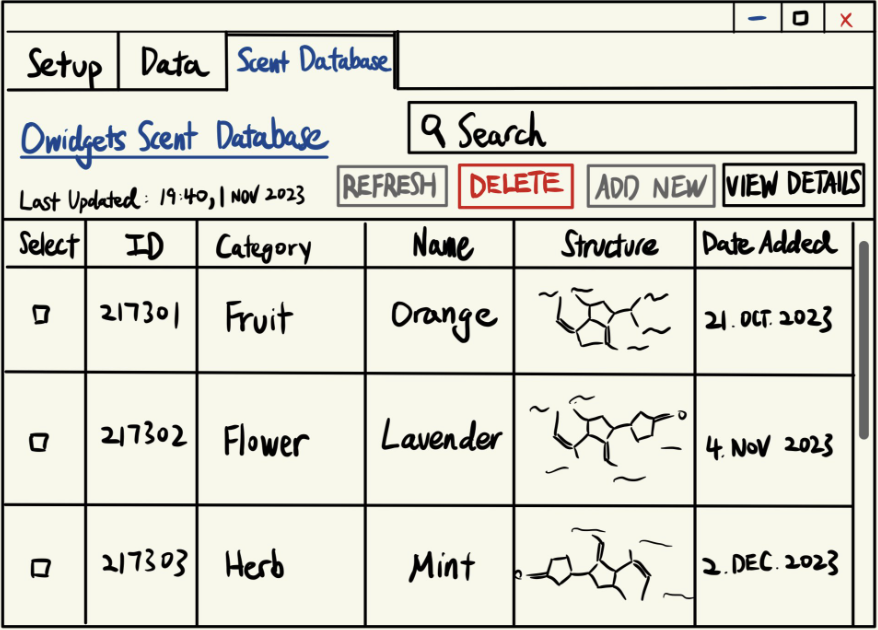 Setup Data Scent Database
Owidgets Scent Database
Search
Last Updated: 19:40, 1 NOV 2023
REFRESH DELETE ADD NEW VIEW DETAILS
Select ID Category Name Structure Date Added
217301 Fruit Orange 21. OCT. 2023
217302 Flower Lavender 4. NOV 2023
217303 Herb Mint 2. DEC. 2023